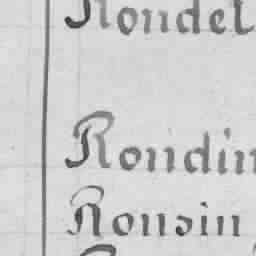 Rondel
Rondin
Ronsin